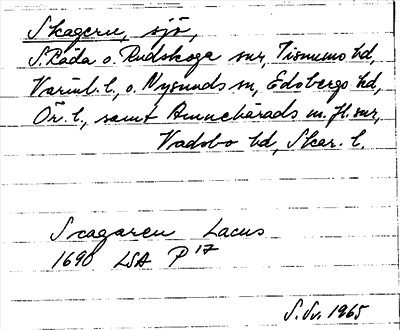 Skagern, sjö,
S. Råda o. Rudskoga snr, Visnums hd,
Värml. l., o. Nysunds sn, Edsbergs hd,
Ör. l., samt Amnehärads m. fl. snr,
Vadsbo hd, Skar. l.
Scagaren Lacus
1690 LSA P 17
S. Sv. 1965